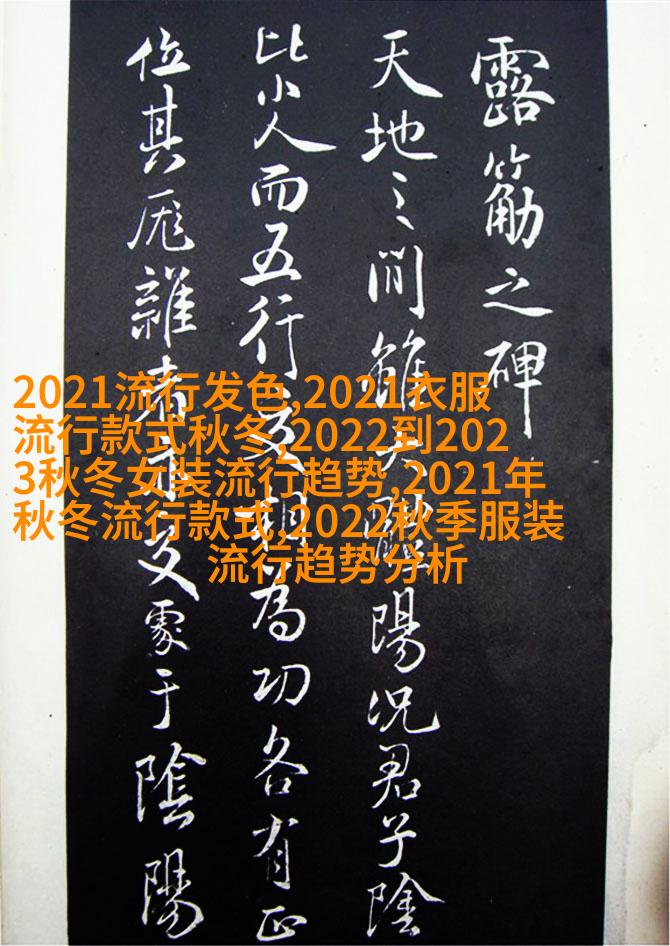 露筋之碑
天地之間雖大體陽況君子陰
比小人而五行交相為功各有正
位其厖雜者亦交處于陰陽
2021流行发色,2021衣服
流行款式秋冬,2022到202
3秋冬女装流行趋势,2021年
秋冬流行款式,2022秋季服装
流行趋势分析